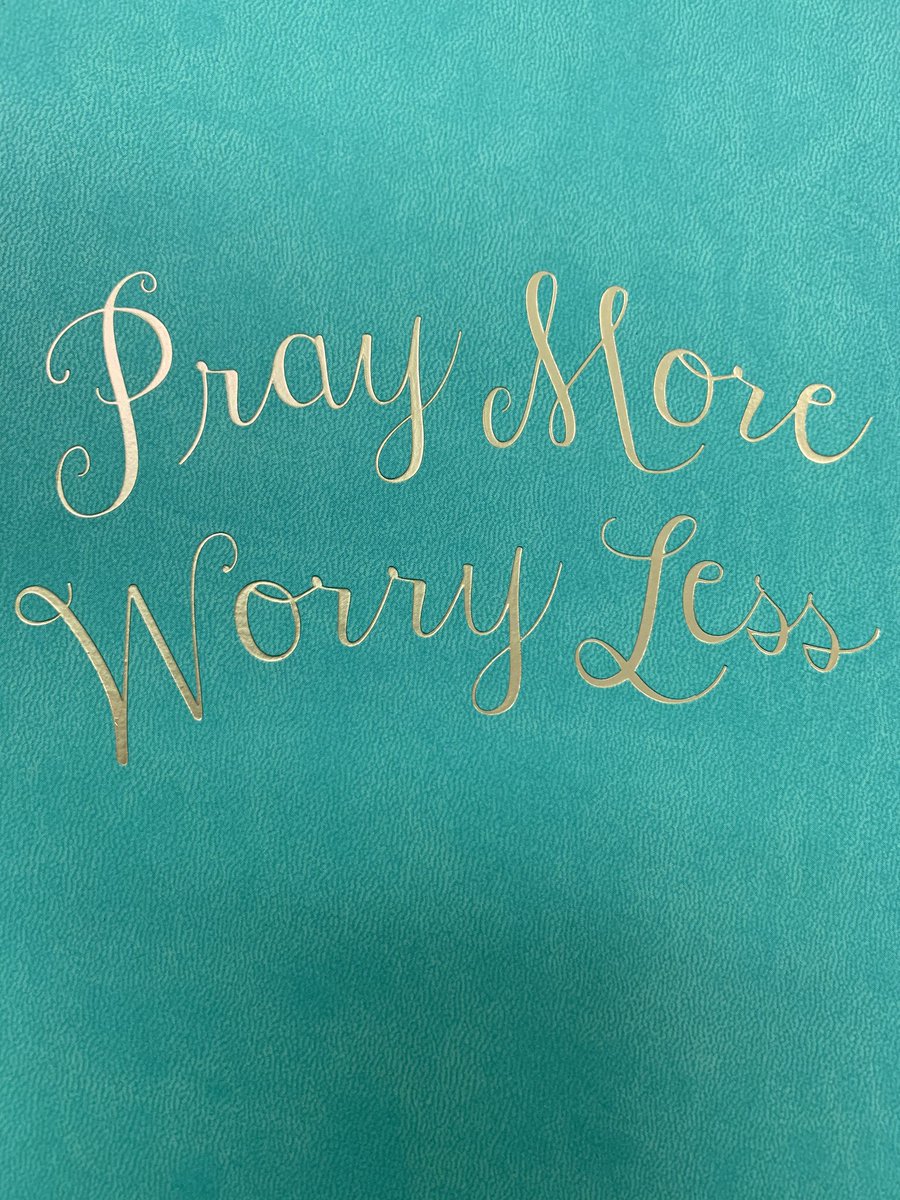 Pray More
Worry Less